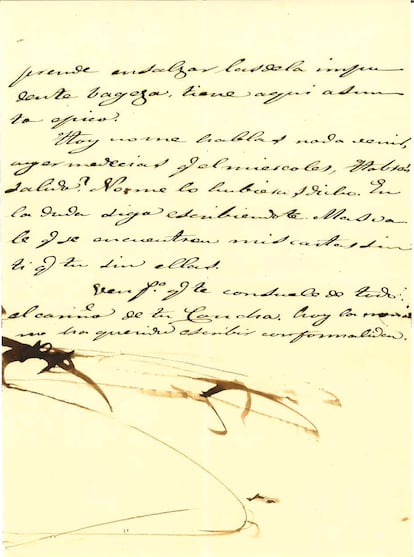 prende ensalzar las de la impu
dente vageza, tiene aqui asun
to epico.
Hoy no me hablas nada venir,
ayer me decias q.e el miercoles,
salido? No me lo hubieras dicho. En
la duda sigo escribiendote. Mas va
le q.e se encuentren mis cartas sin
ti q.e tu sin ellas.
Ven p.a q.e te consuele de todo
el cariño de tu Concha, hoy la
no ha querido escribir con formalidad.